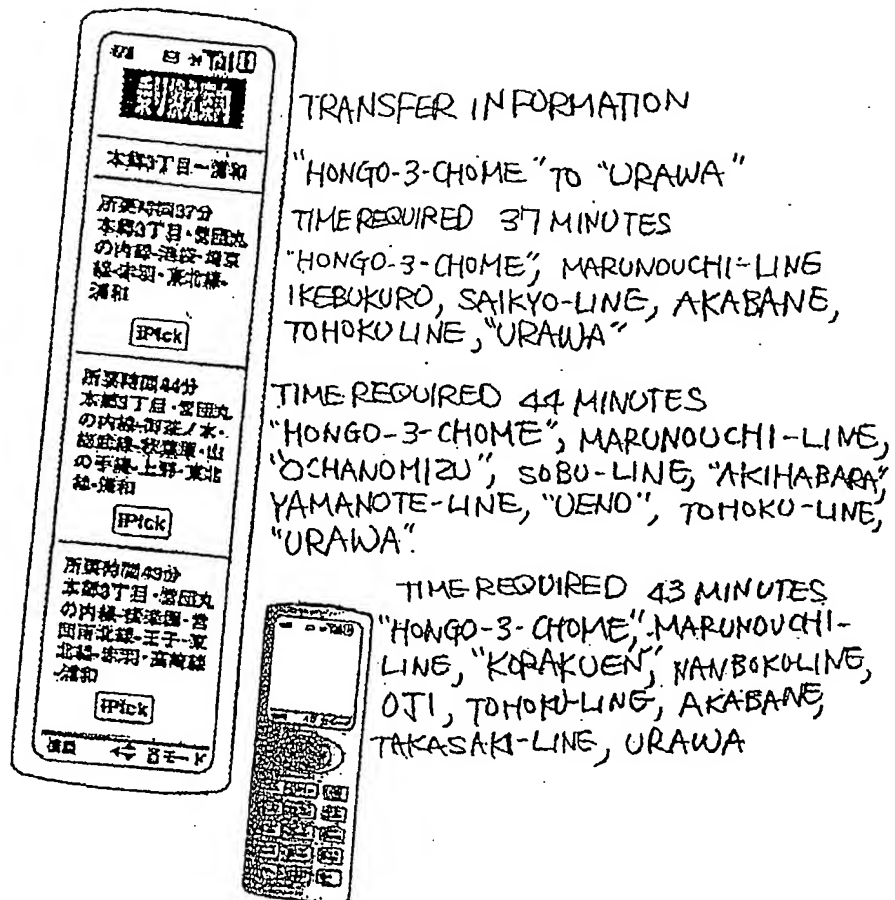 乗換案内
本郷3丁目ー浦和
所要時間37分
本郷3丁目・営団丸
の内線-池袋-埼京
線-赤羽・東北線-
浦和
iPick
所要時間44分
本郷3丁目・営団丸
の内線-御茶ノ水・
総武線-秋葉原・山
の手線-上野・東北
線-浦和
iPick
所要時間43分
本郷3丁目・営団丸
の内線-後楽園-営
団南北線-王子-東
北線-赤羽・高崎線
-浦和
iPick
TRANSFER INFORMATION
"HONGO-3-CHOME" TO "URAWA"
TIME REQUIRED 37 MINUTES
"HONGO-3-CHOME", MARUNOUCHI-LINE
IKEBUKURO, SAIKYO-LINE, AKABANE,
TOHOKU LINE, "URAWA"
TIME REQUIRED 44 MINUTES
"HONGO-3-CHOME", MARUNOUCHI-LINE,
"OCHANOMIZU", SOBU-LINE, "AKIHABARA",
YAMANOTE-LINE, "UENO", TOHOKU-LINE,
"URAWA".
TIME REQUIRED 43 MINUTES
"HONGO-3-CHOME", MARUNOUCHI-
LINE, "KORAKUEN", NANBOKULINE,
OJI, TOHOKU-LINE, AKABANE,
TAKASAKI-LINE, URAWA